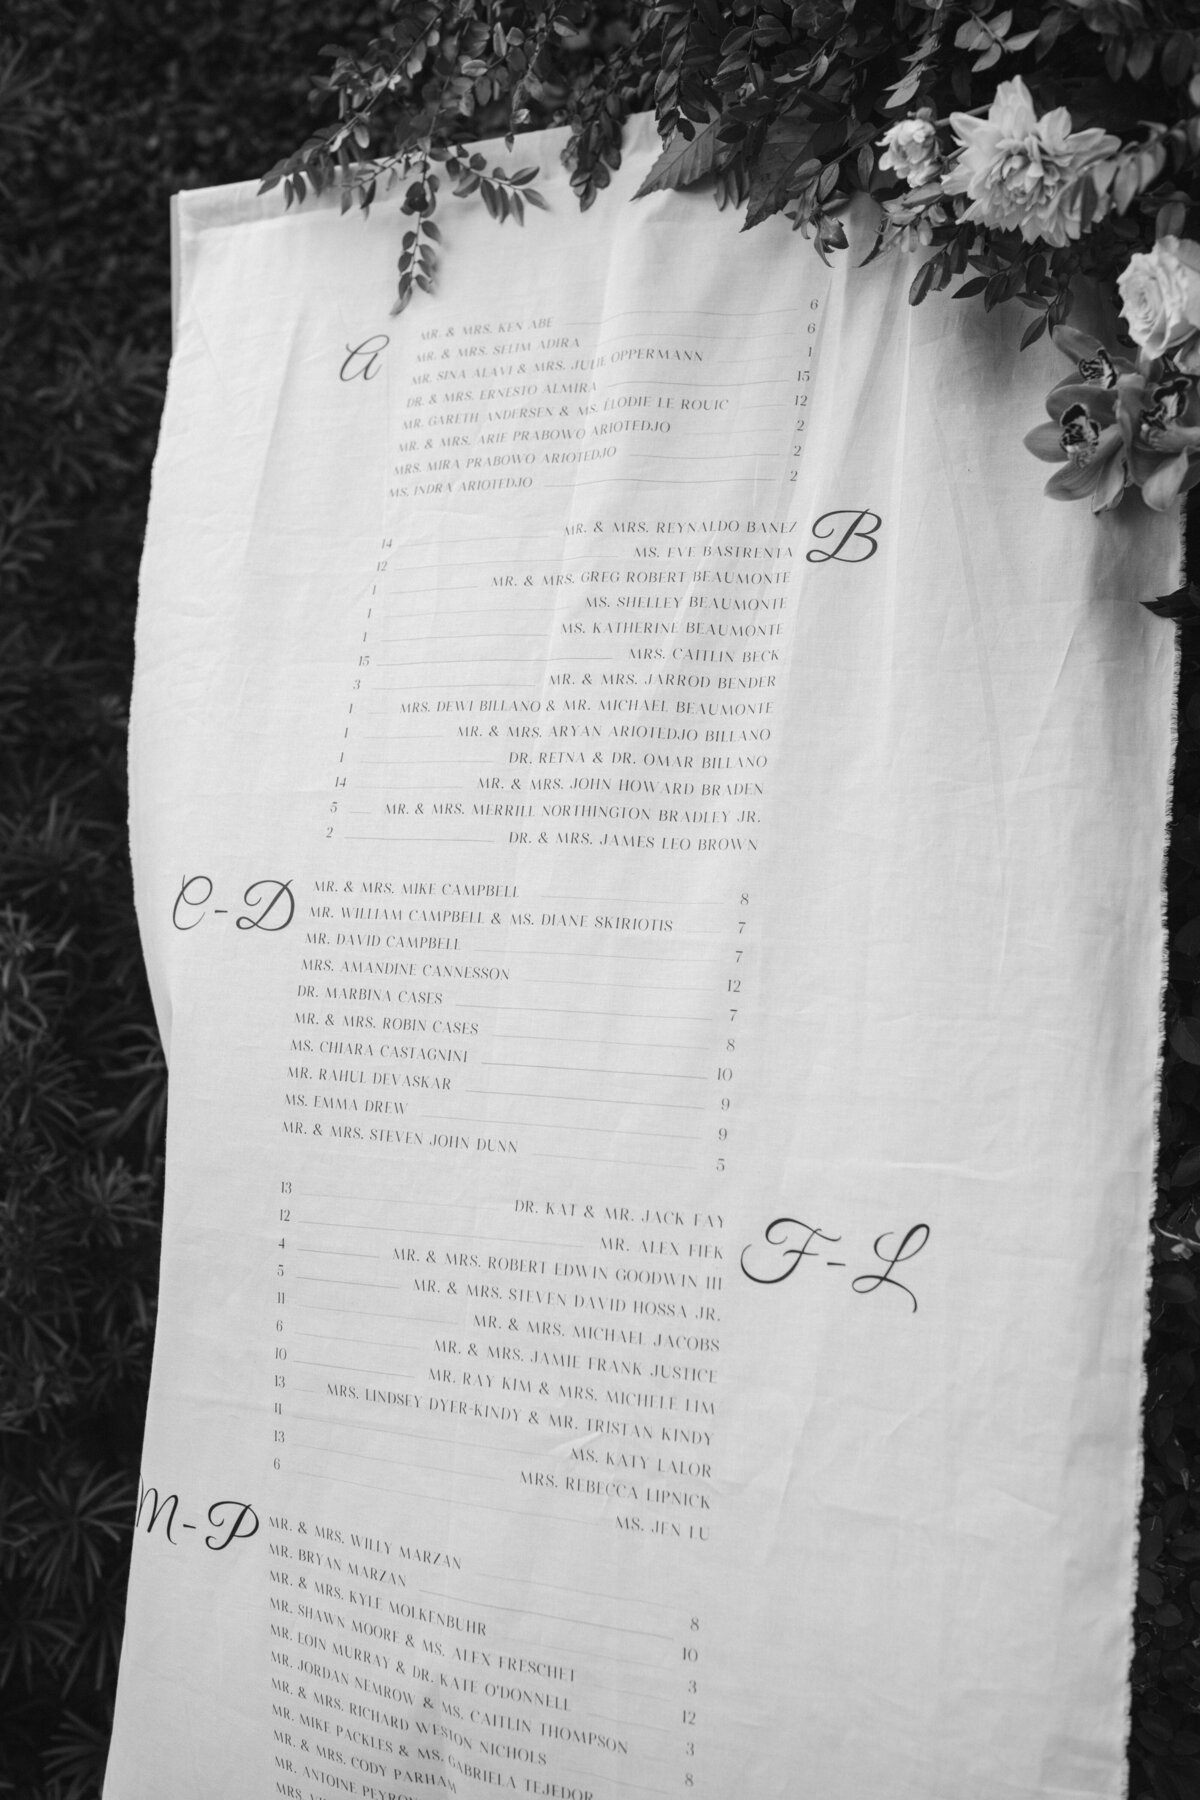 A
MR. & MRS. KEN ABE 6
MR. & MRS. SELIM ADIRA 6
MR. SINA ALAVI & MRS. JULIE OPPERMANN 1
DR. & MRS. ERNESTO ALMIRA 15
MR. GARETH ANDERSEN & MS. ÉLODIE LE ROUIC 12
MR. & MRS. ARIE PRABOWO ARIOTEDJO 2
MRS. MIRA PRABOWO ARIOTEDJO 2
MS. INDRA ARIOTEDJO 2
B
14 MR. & MRS. REYNALDO BANEZ
12 MS. EVE BASTRENTA
1 MR. & MRS. GREG ROBERT BEAUMONTE
1 MS. SHELLEY BEAUMONTE
1 MS. KATHERINE BEAUMONTE
15 MRS. CAITLIN BECK
3 MR. & MRS. JARROD BENDER
1 MRS. DEWI BILLANO & MR. MICHAEL BEAUMONTE
1 MR. & MRS. ARYAN ARIOTEDJO BILLANO
1 DR. RETNA & DR. OMAR BILLANO
14 MR. & MRS. JOHN HOWARD BRADEN
5 MR. & MRS. MERRILL NORTHINGTON BRADLEY JR.
2 DR. & MRS. JAMES LEO BROWN
C-D
MR. & MRS. MIKE CAMPBELL 8
MR. WILLIAM CAMPBELL & MS. DIANE SKIRIOTIS 7
MR. DAVID CAMPBELL 7
MRS. AMANDINE CANNESSON 12
DR. MARBINA CASES 7
MR. & MRS. ROBIN CASES 8
MS. CHIARA CASTAGNINI 10
MR. RAHUL DEVASKAR 9
MS. EMMA DREW 9
MR. & MRS. STEVEN JOHN DUNN 5
F-L
13 DR. KAT & MR. JACK FAY
12 MR. ALEX FIEK
4 MR. & MRS. ROBERT EDWIN GOODWIN III
5 MR. & MRS. STEVEN DAVID HOSSA JR.
11 MR. & MRS. MICHAEL JACOBS
6 MR. & MRS. JAMIE FRANK JUSTICE
10 MR. RAY KIM & MRS. MICHELE LIM
13 MRS. LINDSEY DYER-KINDY & MR. TRISTAN KINDY
11 MS. KATY LALOR
13 MRS. REBECCA LIPNICK
6 MS. JEN LU
M-P
MR. & MRS. WILLY MARZAN 8
MR. BRYAN MARZAN 10
MR. & MRS. KYLE MOLKENBUHR 3
MR. SHAWN MOORE & MS. ALEX FRESCHET 12
MR. EOIN MURRAY & DR. KATE O'DONNELL 3
MR. JORDAN NEMROW & MS. CAITLIN THOMPSON 8
MR. & MRS. RICHARD WESTON NICHOLS
MR. MIKE PACKLES & MS. GABRIELA TEJEDOR
MR. & MRS. CODY PARHAM
MR. ANTOINE
MRS.